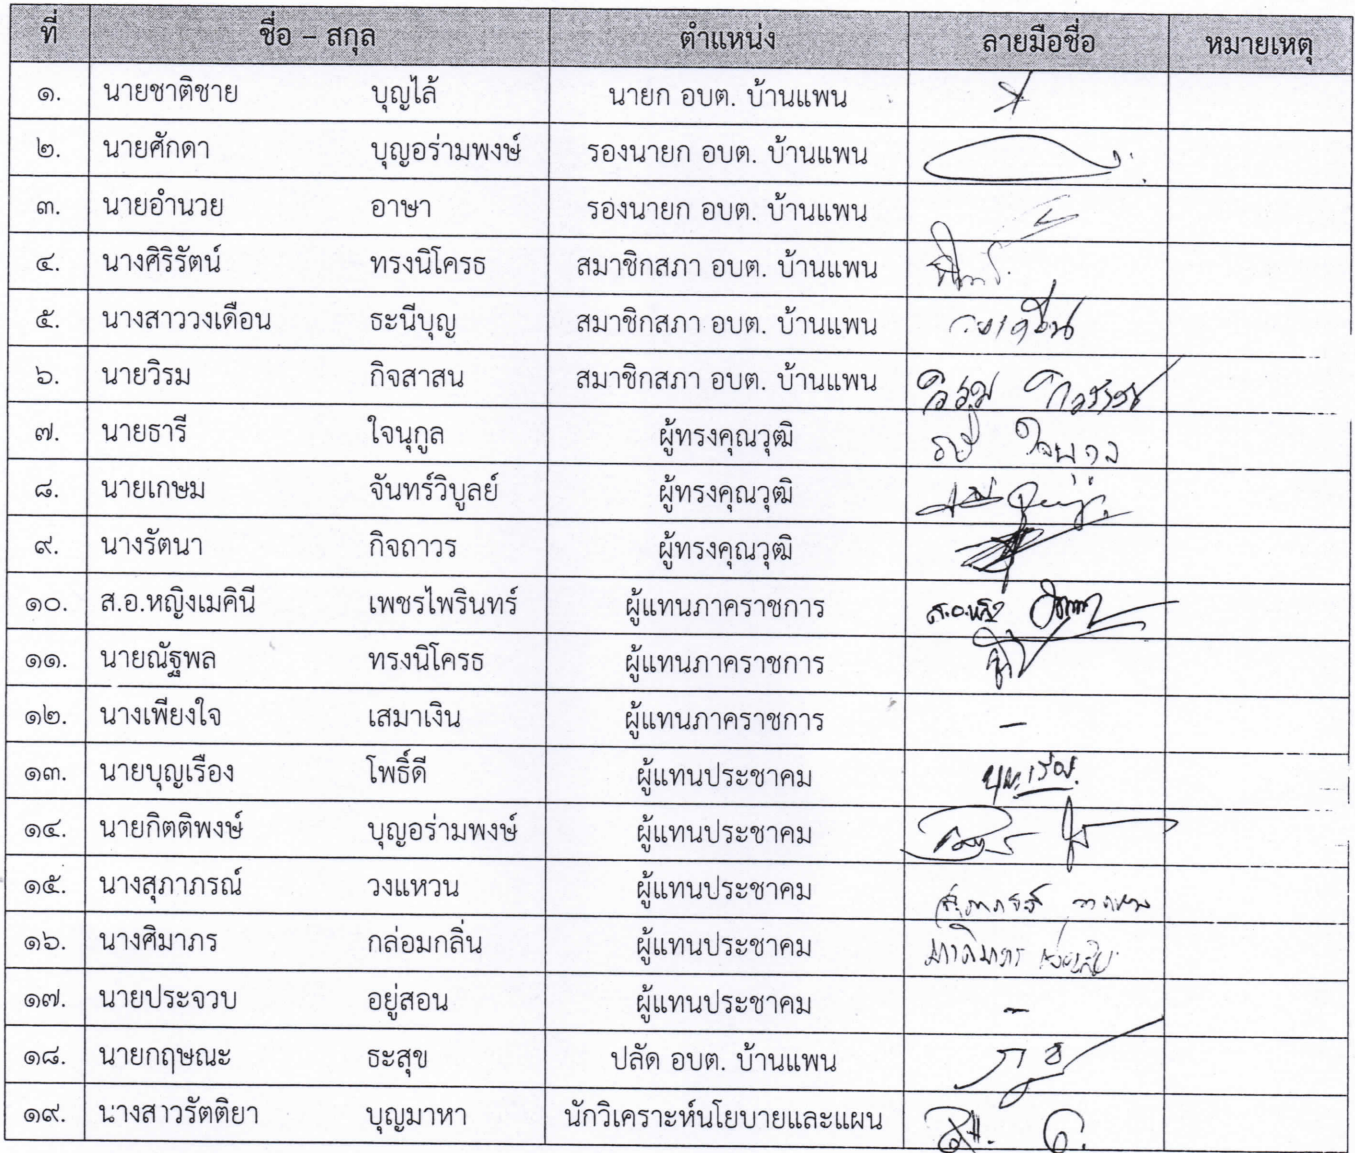 ที่ ชื่อ – สกุล ตำแหน่ง ลายมือชื่อ หมายเหตุ
๑. นายชาติชาย บุญไล้ นายก อบต. บ้านแพน
๒. นายศักดา บุญอร่ามพงษ์ รองนายก อบต. บ้านแพน
๓. นายอำนวย อาษา รองนายก อบต. บ้านแพน
๔. นางศิริรัตน์ ทรงนิโครธ สมาชิกสภา อบต. บ้านแพน
๕. นางสาววงเดือน ธะนีบุญ สมาชิกสภา อบต. บ้านแพน วงเดือน
๖. นายวิรม กิจสาสน สมาชิกสภา อบต. บ้านแพน
๗. นายธารี ใจนุกูล ผู้ทรงคุณวุฒิ
๘. นายเกษม จันทร์วิบูลย์ ผู้ทรงคุณวุฒิ
๙. นางรัตนา กิจถาวร ผู้ทรงคุณวุฒิ
๑๐. ส.อ.หญิงเมคินี เพชรไพรินทร์ ผู้แทนภาคราชการ ส.อ.หญิง
๑๑. นายณัฐพล ทรงนิโครธ ผู้แทนภาคราชการ
๑๒. นางเพียงใจ เสมาเงิน ผู้แทนภาคราชการ -
๑๓. นายบุญเรือง โพธิ์ดี ผู้แทนประชาคม
๑๔. นายกิตติพงษ์ บุญอร่ามพงษ์ ผู้แทนประชาคม
๑๕. นางสุภาภรณ์ วงแหวน ผู้แทนประชาคม
๑๖. นางศิมาภร กล่อมกลิ่น ผู้แทนประชาคม
๑๗. นายประจวบ อยู่สอน ผู้แทนประชาคม -
๑๘. นายกฤษณะ ธะสุข ปลัด อบต. บ้านแพน
๑๙. นางสาวรัตติยา บุญมาหา นักวิเคราะห์นโยบายและแผน